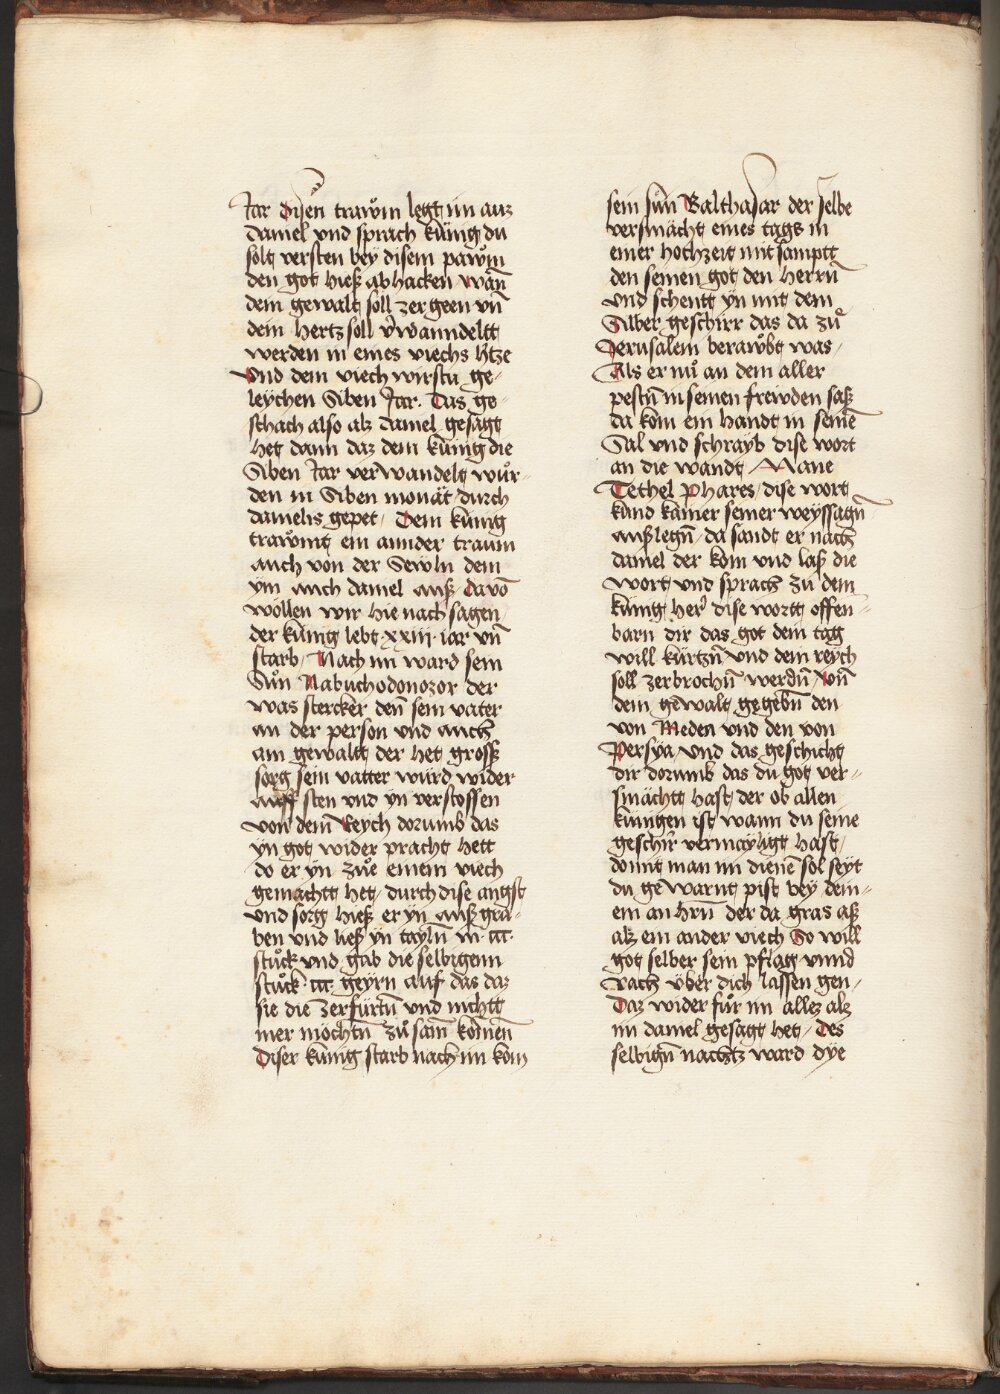 Jar Disen trawm legt im aus
daniel vnd sprach kunig du
solt versten bey disem pawm
den got hieß abhacken wan̄
dem gewalt soll zergeen vn̄
dein hertz soll v̓wanndeltt
werden in eines viechs h̓tze
vnd dem viech wirstu ge-
leychen Siben Jar. Das ge-
schach also alz daniel gesagt
het dann daz dem kunig die
Siben Jar verwandelt wůr-
den in Siben monat durch
danielis gepet / Dem kunig
trawmt ein annder traum
auch von der Sewln dem
ym auch daniel auß / dauō
wöllen wir hie nach sagen
der kunig lebt xxiii iar vn̄
starb / Nach im ward sein
Sůn Nabuchodonozor der
was stercker den̄ sein vater
an der person vnd auch
am gewaltt der het grosß
sorg sein vatter würd wider
auff sten vnd yn verstossen
von dem Reych dorumb das
yn got wider pracht hett
do er yn zuͦ einem viech
gemachtt het / durch dise angst
vnd sorg hieß er yn auß gra-
ben vnd ließ yn tayln̄ in .ccc.
stuck vnd gab die selbigenn
stuck .ccc. geyrn auf das daz
sie die zerfürtn̄ vnd nichtt
mer mochtn̄ zů sam̄ komen̄
Diser kunig starb nach im kom
sein sůn Balthasar der selbe
versmächt eines tags in
einer hochzeit mit samptt
den seinen got den herrn̄
vnd schentt yn mit dem
Silber geschirr das da zuͦ
Jerusalem berawbt was /
Als er nů an dem aller
pestn̄ in seinen frewden saß
da kom ein handt in seinē
Sal vnd schrayb dise wort
an die wandt / Mane
Tethel phares / dise wort
kund kainer seiner weyssagn̄
außlegn̄ da sandt er nach
daniel der kom vnd laß die
wort vnd sprach zu dem
kunig her̓ dise wortt offen-
barn dir das got dein tag
will kürtzn̄ vnd dein reych
soll zerbrochn̄ werdn̄ / von̄
dem gewalt gegebn̄ den
von Meden vnd den von
Persya vnd das geschicht
dir dorumb das du got ver-
smächtt hast / der ob allen
kunigen ist wann du seine
geschir̓ vermayligt hast /
domit man im dienē sol seyt
du gewarnt pist bey dein-
em an hrn̄ der da gras aß
alz ein ander viech So will
got selber sein pflag vnnd
rach über dich lassen gen /
Daz wider für im allez alz
im daniel gesagt het / Des
selbign̄ nachtz ward dye